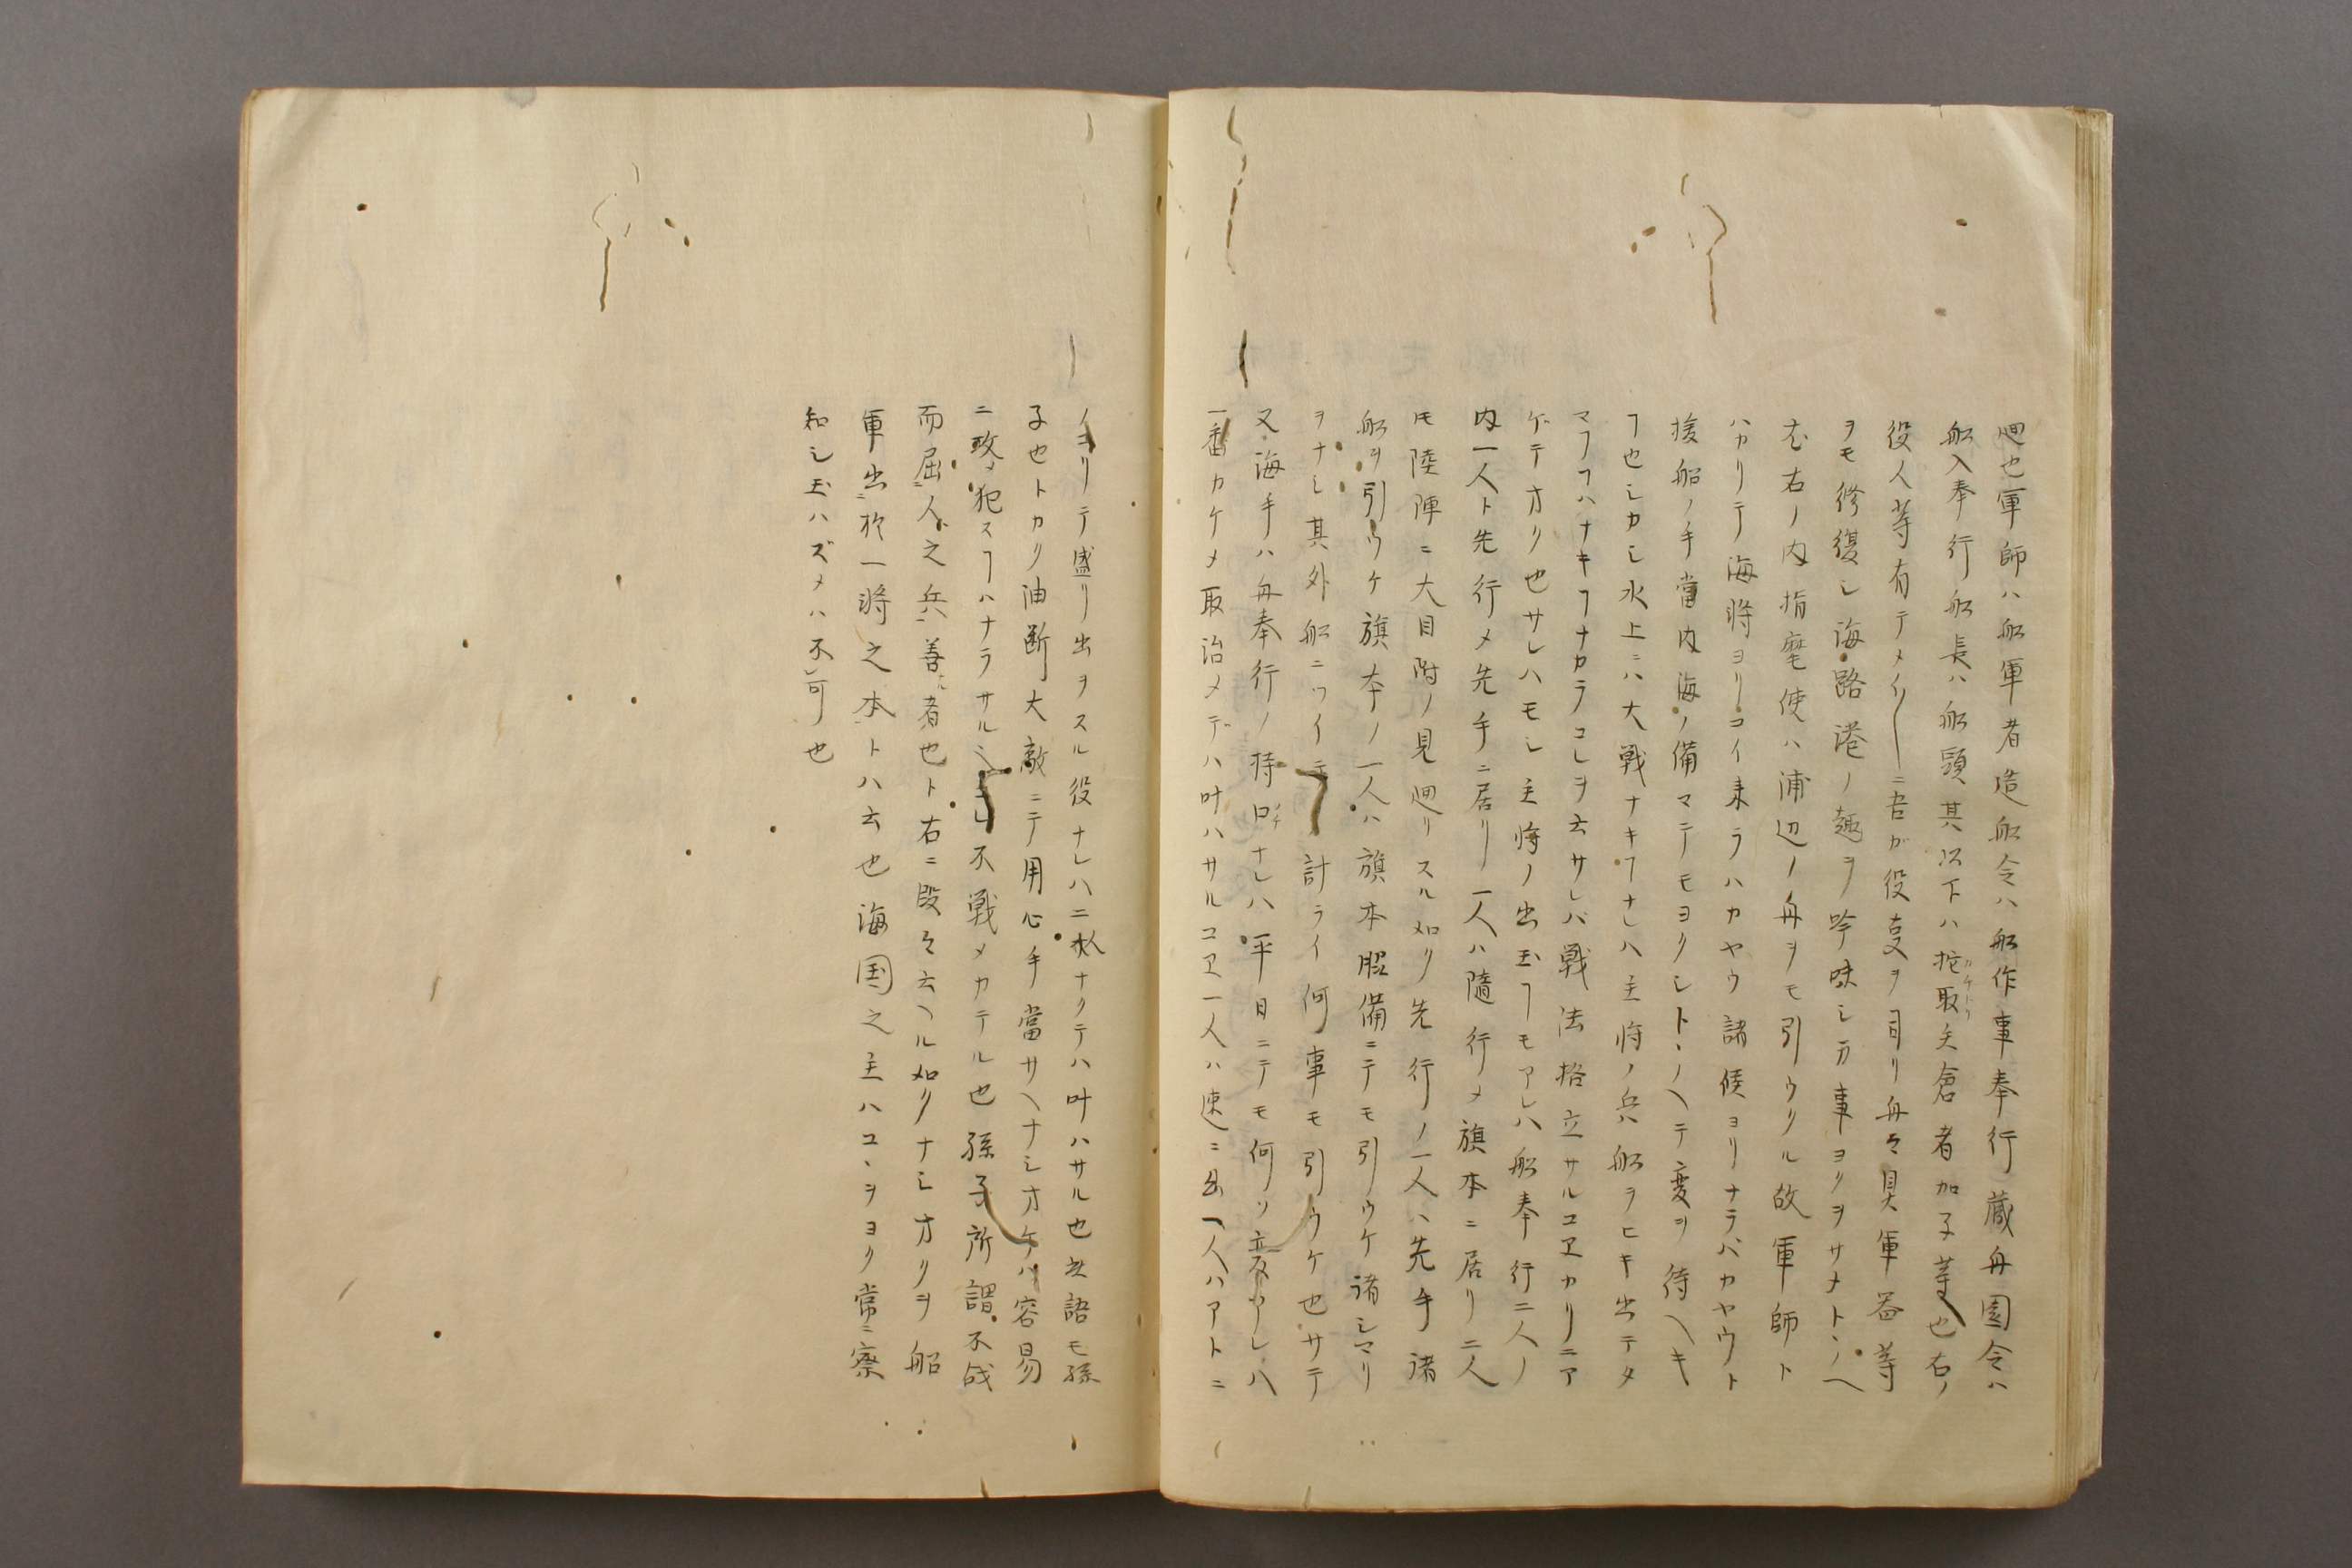 廻也軍師ハ船軍者造船令ハ船作事奉行蔵舟園令ハ
船入奉行船長ハ船頭其以下ハ舵取矢倉者加子等也右ノ
役人等有テメイ〱ニ吾ガ役夏ヲ司リ舟々具軍器等
ヲモ修復シ海路港ノ趣ヲ吟味シ万事ヨクヲサメトヽノヘ
右ノ内指麾使ハ浦辺ノ舟ヲモ引ウクル故軍師ト
ハカリテ海将ヨリコイ来ラハカヤウ諸候ヨリナラバカヤウト
援船ノ手當内海ノ備マテモヨクシトヽノヘテ変ヲ待ヘキ
ヿ也シカシ水上ニハ大戦ナキヿナレハ主将ノ兵船ヲヒキ出テタ
マフヿハナキヿナカラコレヲ云サレバ戦法格立サルユヱカリニア
ゲテオク也サレハモシ主将ノ出玉ヿモアレハ船奉行二人ノ
内一人ト先行メ先手ニ居リ一人ハ随行メ旗本ニ居リ二人
モ陸陣ニ大目附ノ見廻リスル如ク先行ノ一人ハ先手諸
船ヲ引ウケ旗本ノ一人ハ旗本脇備ニテモ引ウケ諸シマリ
ヲナシ其外船ニツイテ計ライ何事モ引ウケ也サテ
又海手ハ舟奉行ノ持口ナレハ平日ニテモ何ソ変アレハ
一番カケメ取治メデハ叶ハサルユヱ一人ハ速ニ出一人ハアトニ
ノコリテ盛リ出ヲスル役ナレハ二人ナクテハ叶ハサル也語モ孫
子也トカク油断大敵ニテ用心手當サヘナシオケハ容易
ニ攻メ犯スヿハナラサルユヱレ不戦メカテル也孫子所謂不战
而屈人之兵善者也ト右ニ段々云ヘル如クナシオクヲ船
軍出於一將之本トハ云也海国之主ハコヽヲヨク常ニ察
知シ玉ハズメハ不可也